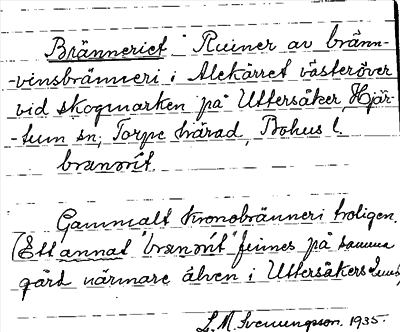 Bränneriet - Ruiner av bränn-
-vinsbränneri i Alekärret västeröver
vid skogmarken på Uttersåker, Hjär-
-tum sn; Torpe härad, Bohus l.
brænnrit.
Gammalt kronobränneri troligen.
(Ett annat "brænnrit" finnes på samma
gård närmare älven i Uttersåkers
L. M. Svenungsson. 1935.